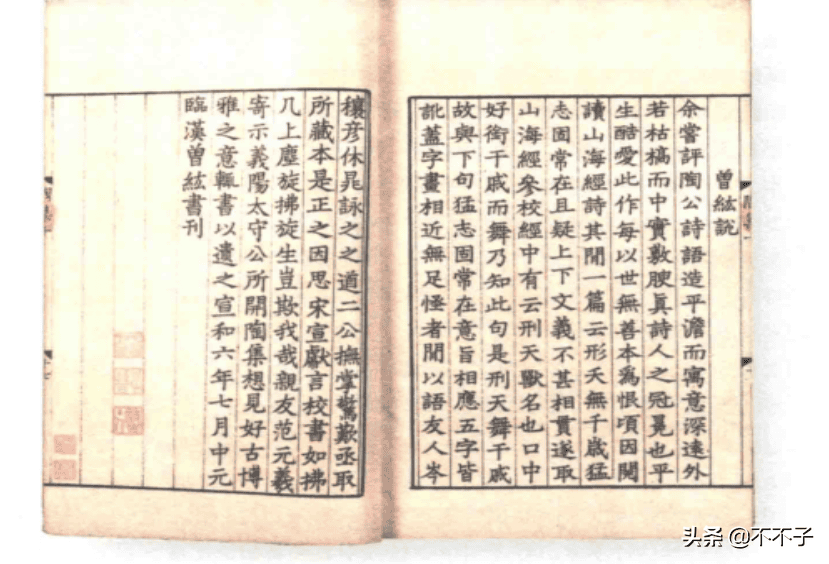 曾紘說
余嘗評陶公詩語造平澹而寓意深遠外
若枯槁而中實敷腴眞詩人之冠冕也平
生酷愛此作每以世無善本爲恨頃因閱
讀山海經詩其間一篇云形夭無千歲猛
志固常在且疑上下文義不甚相貫遂取
山海經參校經中有云刑天獸名也口中
好銜干戚而舞乃知此句是刑天舞干戚
故與下句猛志固常在意旨相應五字皆
訛蓋字畫相近無足怪者間以語友人岑
穰彥休晁詠之之道二公撫掌驚歎亟取
所藏本是正之因思宋宣獻言校書如拂
几上塵旋拂旋生豈欺我哉親友范元羲
寄示義陽太守公所開陶集想見好古博
雅之意輒書以遺之宣和六年七月中元
臨漢曾紘書刊
头条 @不不子